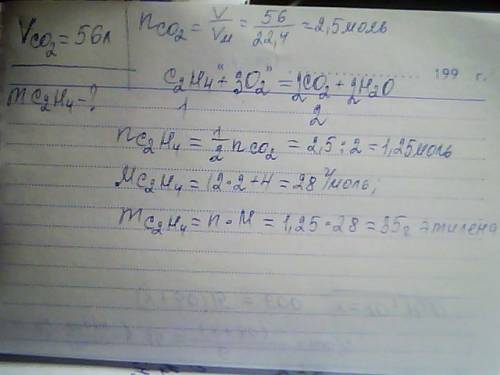 Vco₂ = 56л
mC₂H₄ - ?
nco₂ = V/Vм = 56/22,4 = 2,5 моль
199 г.
C₂H₄ + 3O₂ = 2CO₂ + 2H₂O
1 2
nC₂H₄ = 1/2 nco₂ = 2,5 : 2 = 1,25 моль
MC₂H₄ = 12 · 2 + 4 = 28 г/моль;
mC₂H₄ = n · M = 1,25 · 28 = 35г этилена